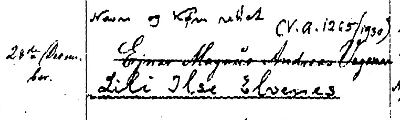 Navn og Køn rettet
(V.A. 1265/1930)
28de Decem-
ber.
Ejnar Magnus Andreas Wegener
Lili Ilse Elvenes